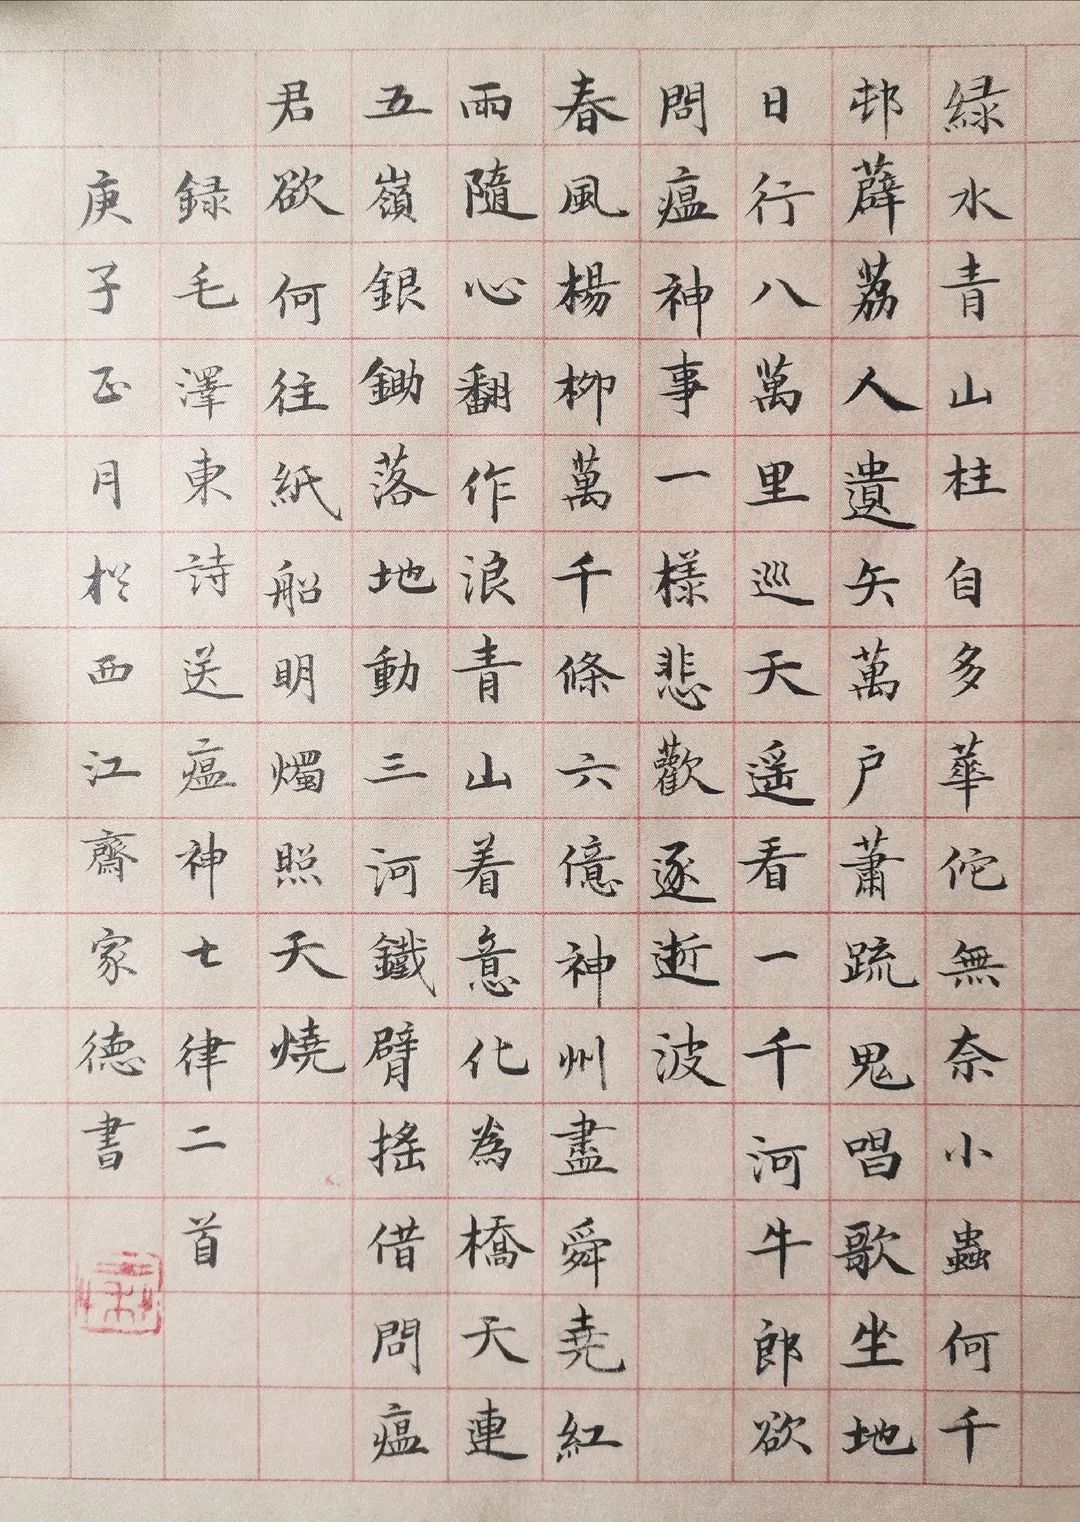 緑水青山柱自多華佗無奈小蟲何千
邨薜荔人遺矢萬户蕭疏鬼唱歌坐地
日行八萬里巡天遥看一千河牛郎欲
問瘟神事一樣悲歡逐逝波
春風楊柳萬千條六億神州盡舜堯紅
雨隨心翻作浪青山着意化為橋天連
五嶺銀鋤落地動三河鐵臂搖借問瘟
君欲何往紙船明燭照天燒
録毛澤東詩送瘟神七律二首
庚子正月扵西江齋家德書